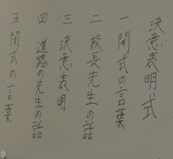 決意表明式
一 開式の言葉
二 校長先生の話
三 決意表明
四 道路の先生の話
五 閉式の言葉